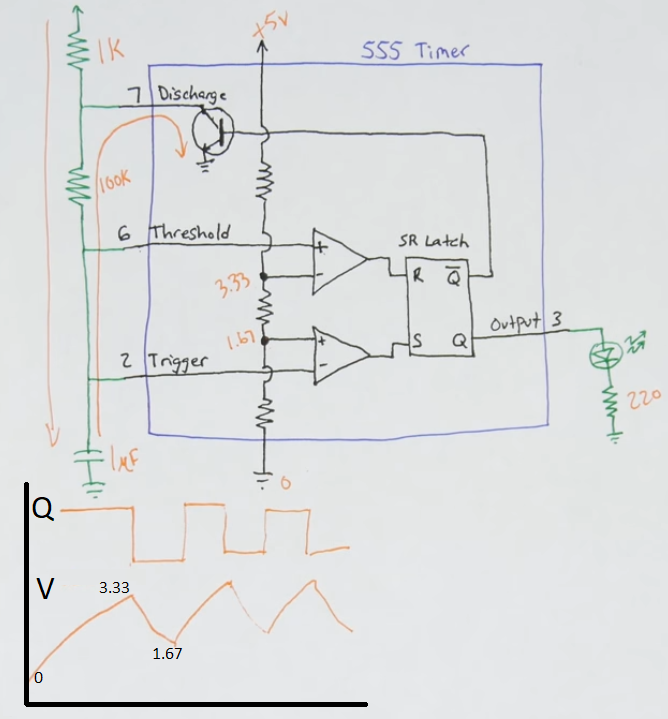 +5V
555 Timer
1K
7 Discharge
100K
6 Threshold
SR Latch
+
-
R Q̅
3.33
Output 3
1.67
+
-
S Q
2 Trigger
220
1µF
0
Q
V
3.33
1.67
0